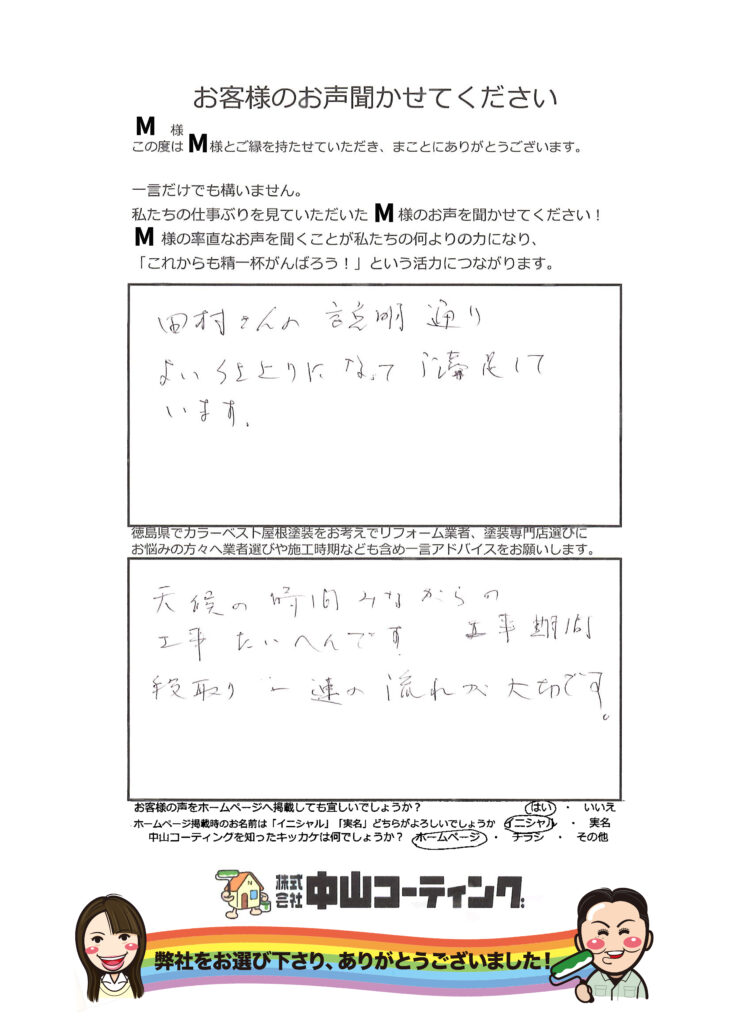 お客様のお声聞かせてください
M 様
この度は M 様とご縁を持たせていただき、まことにありがとうございます。
一言だけでも構いません。
私たちの仕事ぶりを見ていただいた M 様のお声を聞かせてください！
M 様の率直なお声を聞くことが私たちの何よりの力になり、
「これからも精一杯がんばろう！」という活力につながります。
田村さんの 説明 通り
よい仕上りになって 満足して
います。
徳島県でカラーベスト屋根塗装をお考えでリフォーム業者、塗装専門店選びに
お悩みの方々へ業者選びや施工時期なども含め一言アドバイスをお願いします。
天候の時間みながらの
工事たいへんです 工事期間
段取り 一連の流れが大切です。
お客様の声をホームページへ掲載しても宜しいでしょうか？ はい ・ いいえ
ホームページ掲載時のお名前は「イニシャル」「実名」どちらがよろしいでしょうか イニシャル ・ 実名
中山コーティングを知ったキッカケは何でしょうか？ ホームページ ・ チラシ ・ その他
株式会社 中山コーティング
弊社をお選び下さり、ありがとうございました！